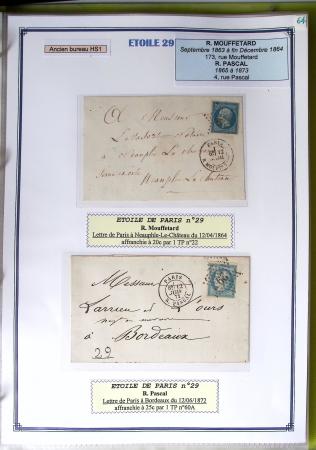 64
Ancien bureau HS1
ETOILE 29
R. MOUFFETARD
Septembre 1863 à fin Décembre 1864
173, rue Mouffetard
R. PASCAL
1865 à 1873
4, rue Pascal
A Monsieur
à Neauphle Le Château
Neauphle Le Château
PARIS
ETOILE DE PARIS n°29
R. Mouffetard
Lettre de Paris à Neauphle-Le-Château du 12/04/1864
affranchie à 20c par 1 TP n°22
PARIS
R. PASCAL
Messieurs
Larrieu et
à
Bordeaux
29
ETOILE DE PARIS n°29
R. Pascal
Lettre de Paris à Bordeaux du 12/06/1872
affranchie à 25c par 1 TP n°60A